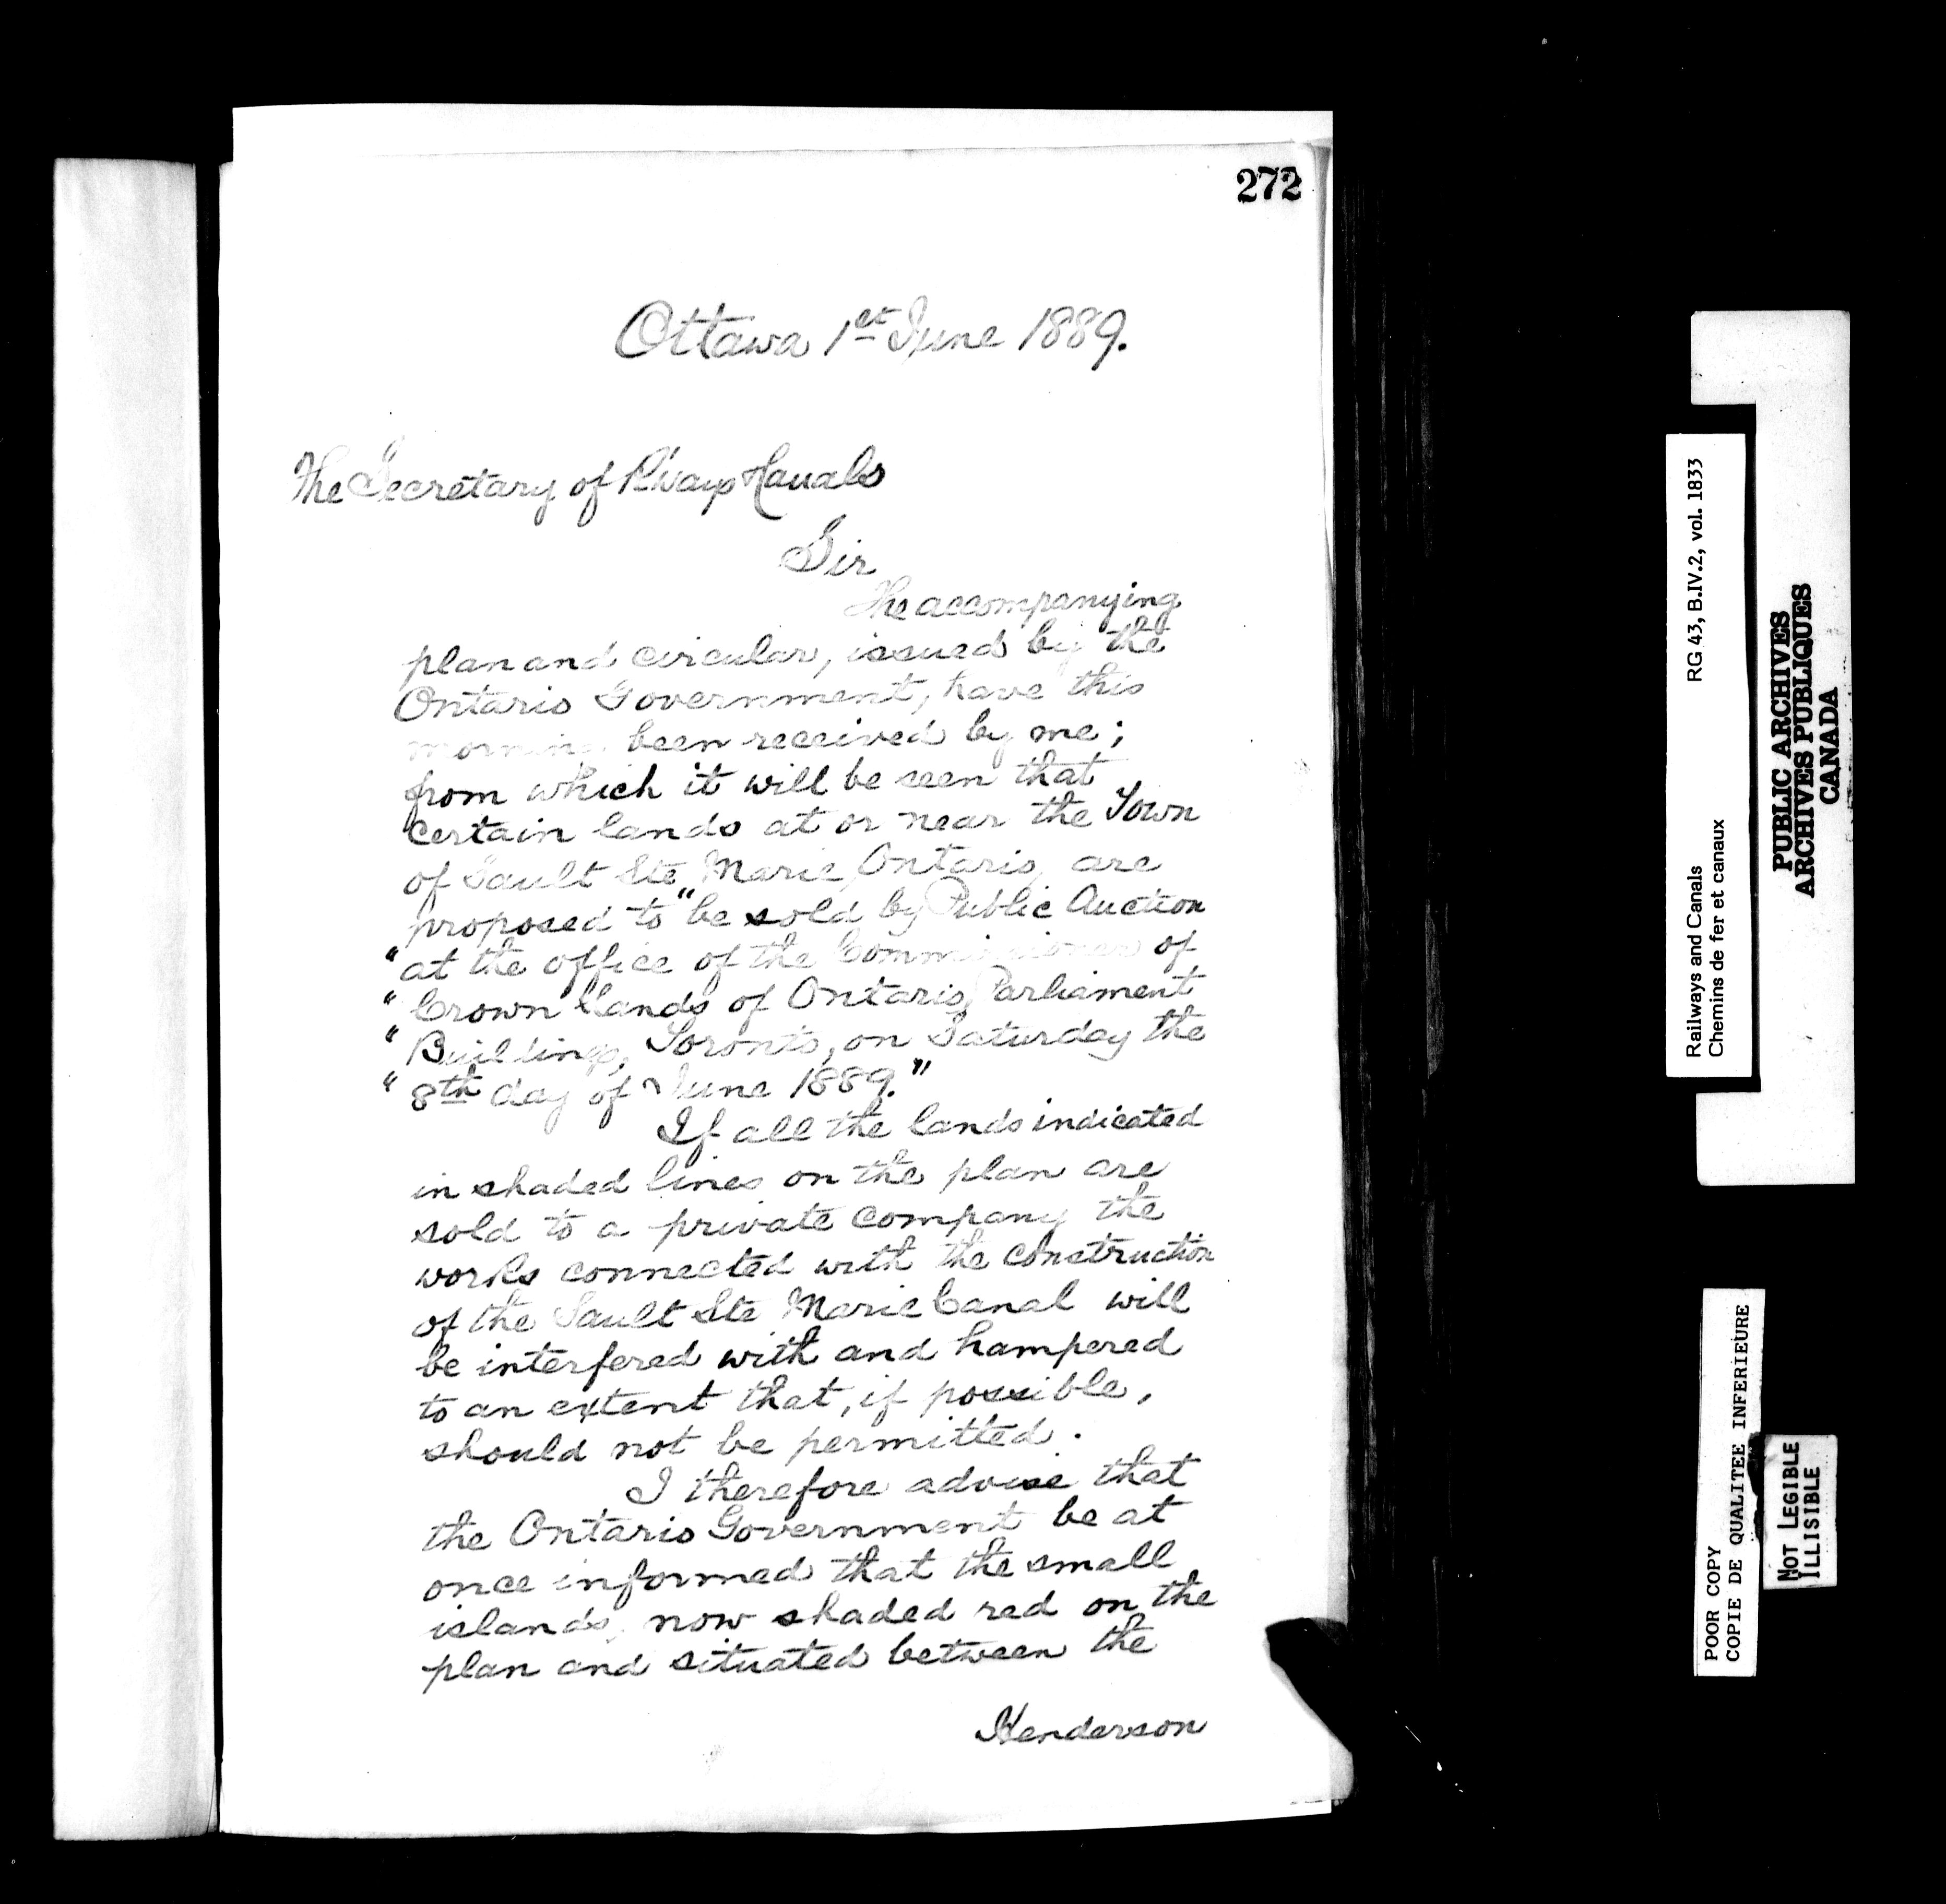 272
Ottawa 1st June 1889.
The Secretary of R'ways & Canals
Sir
The accompanying
plan and circular, issued by the
Ontario Government, have this
morning been received by me;
from which it will be seen that
certain lands at or near the Town
of Sault Ste Marie, Ontario, are
proposed to "be sold by Public Auction
"at the office of the Commissioner of
"Crown Lands of Ontario, Parliament
"Buildings, Toronto, on Saturday the
"8th day of June 1889."
If all the lands indicated
in shaded lines on the plan are
sold to a private company the
works connected with the construction
of the Sault Ste Marie Canal will
be interfered with and hampered
to an extent that, if possible,
should not be permitted.
I therefore advise that
the Ontario Government be at
once informed that the small
islands, now shaded red on the
plan and situated between the
Henderson
Railways and Canals RG 43, B.IV.2, vol. 1833
Chemins de fer et canaux
PUBLIC ARCHIVES
ARCHIVES PUBLIQUES
CANADA
POOR COPY
COPIE DE QUALITEE INFERIEURE
NOT LEGIBLE
ILLISIBLE